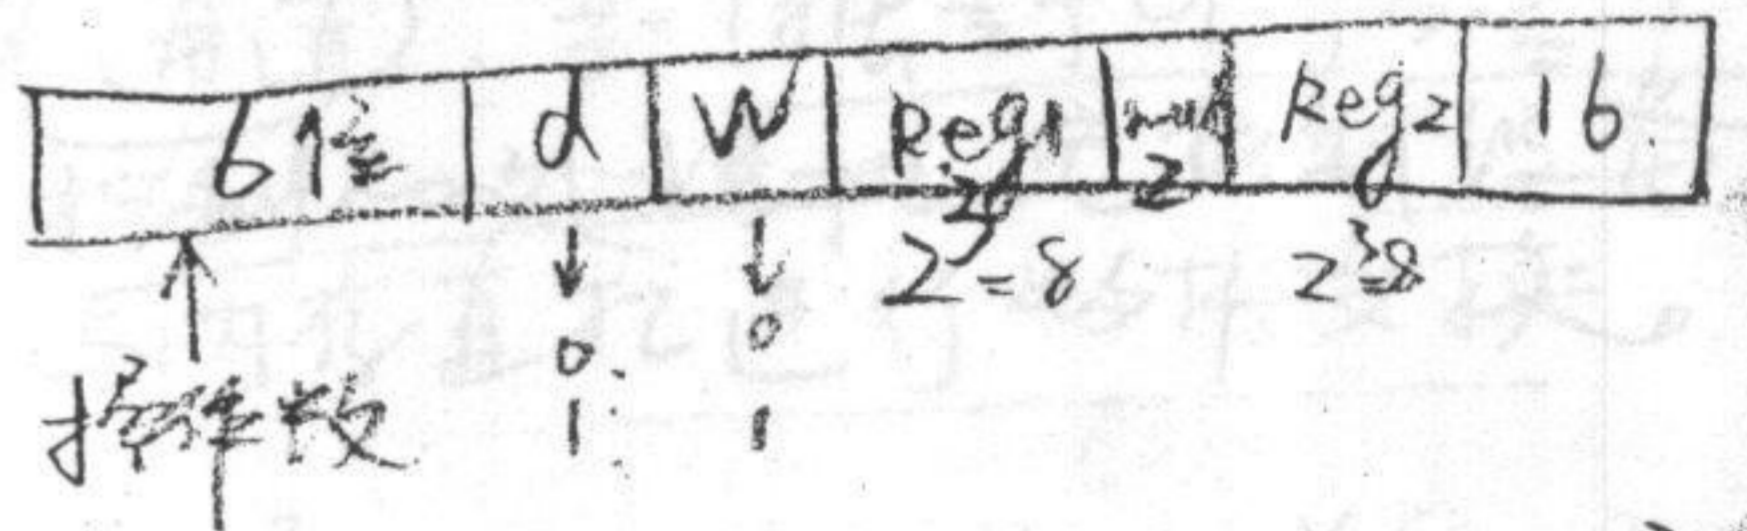 6位 d w Reg1 Reg2 16.
2
2³=8 2³=8
0. 0
操作数 1. 1